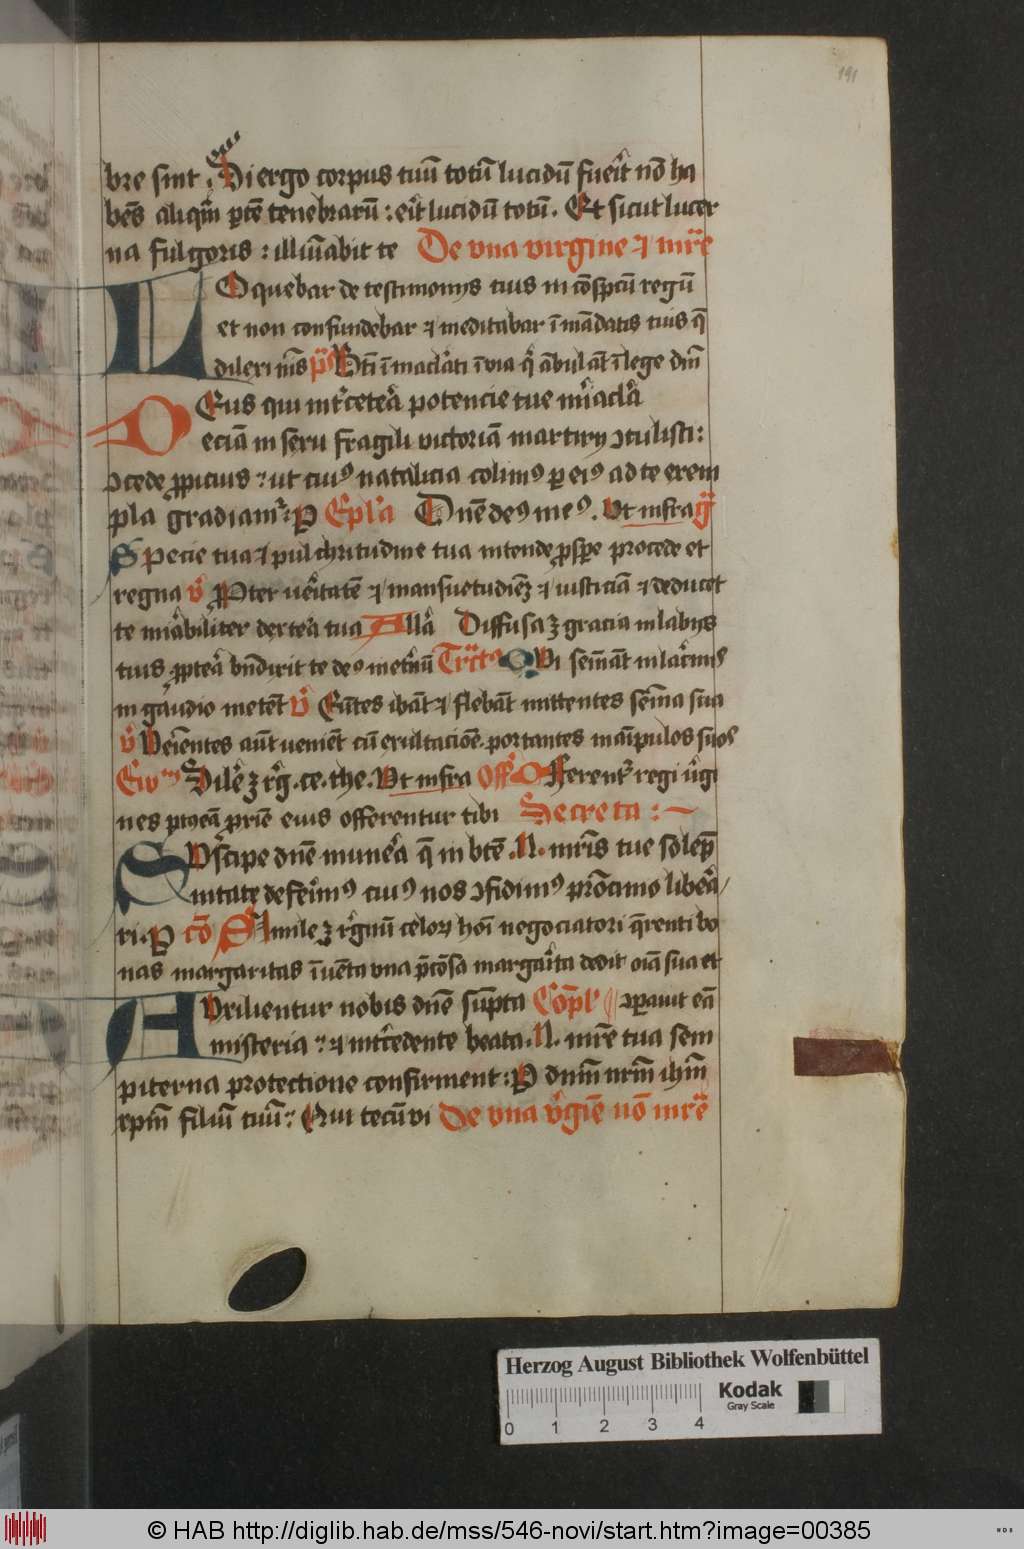 191
bre sint. Si ergo corpus tuū totū lucidū fuerit nō ha
bēs aliqm̄ ptē tenebrarū : erit lucidū totū. Et sicut lucer
na fulgoris : illuīabit te De vna virgine ⁊ mr̄e
LOquebar de testimonijs tuis in cōspcū regū
et non confundebar ⁊ meditabar ī mādatis tuis q̄
dilexi nīs p̄s Bti īmaclati ī via q̄ ābulāt ī lege dnī
DEus qui intr̄ cetea potencie tue mir̄acla
eciā in sexu fragili victoriā martirij ꝯtulisti :
ꝯcede ꝓpicius : ut cuiꝰ natalicia colimꝰ p eiꝰ ad te exem
pla gradiamr̄ : P Epl'a Dnē deꝰ meꝰ. Vt infra g̃
Specie tua ⁊ pulchritudine tua intende ꝓspe procede et
regna v̄ Pꝓter ueritatē ⁊ mansuetudiēʒ ⁊ iusticiā ⁊ deducet
te mirabiliter dextera tua Alla Diffusa ʒ gracia in labijs
tuis ꝓptea bndixit te deꝰ in etnū Trctꝰ QVi semāt in lacrimis
in gaudio metēt v̄ Eūtes ibāt ⁊ flebāt mittentes semīa sua
v̄ Veīentes aūt uenīēt cū exultacioē portantes maīpulos suos
Ewm Sile ʒ rg̃. ce. the. Vt infra Off. Offerentr̄ regi virgi
nes p9 eā prīe eius offerentur tibi Secreta :
SVscipe dnē munera q̄ in btē .N. mr̄is tue solēp
nitate deferimꝰ cuiꝰ nos ꝯfidimꝰ prōcinio libera
ri. P cō Simile ʒ rgnū celoꝝ hoī negociatori q̄renti bo
nas margaritas īuēta vna p̄cōsa margarita dedit oīa sua et
AVxilientur nobis dnē supta Cōpl' ꝯpauit eā
misteria : ⁊ intr̄cedente beata .N. mr̄e tua sem
piterna protectione confirment : P dnm̄ nrm̄ ihm̄
xpm̄ filiū tuū : Qui tecū vi De vna vgīe nō mr̄e
Herzog August Bibliothek Wolfenbüttel
0 1 2 3 4
Kodak
Gray Scale
© HAB http://diglib.hab.de/mss/546-novi/start.htm?image=00385